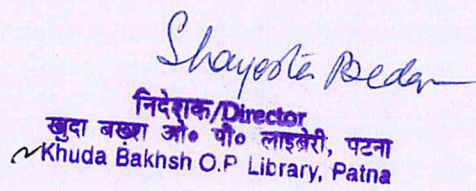 Shayesta Bedar
निदेशक/Director
खुदा बख्श ओ० पी० लाइब्रेरी, पटना
Khuda Bakhsh O.P Library, Patna